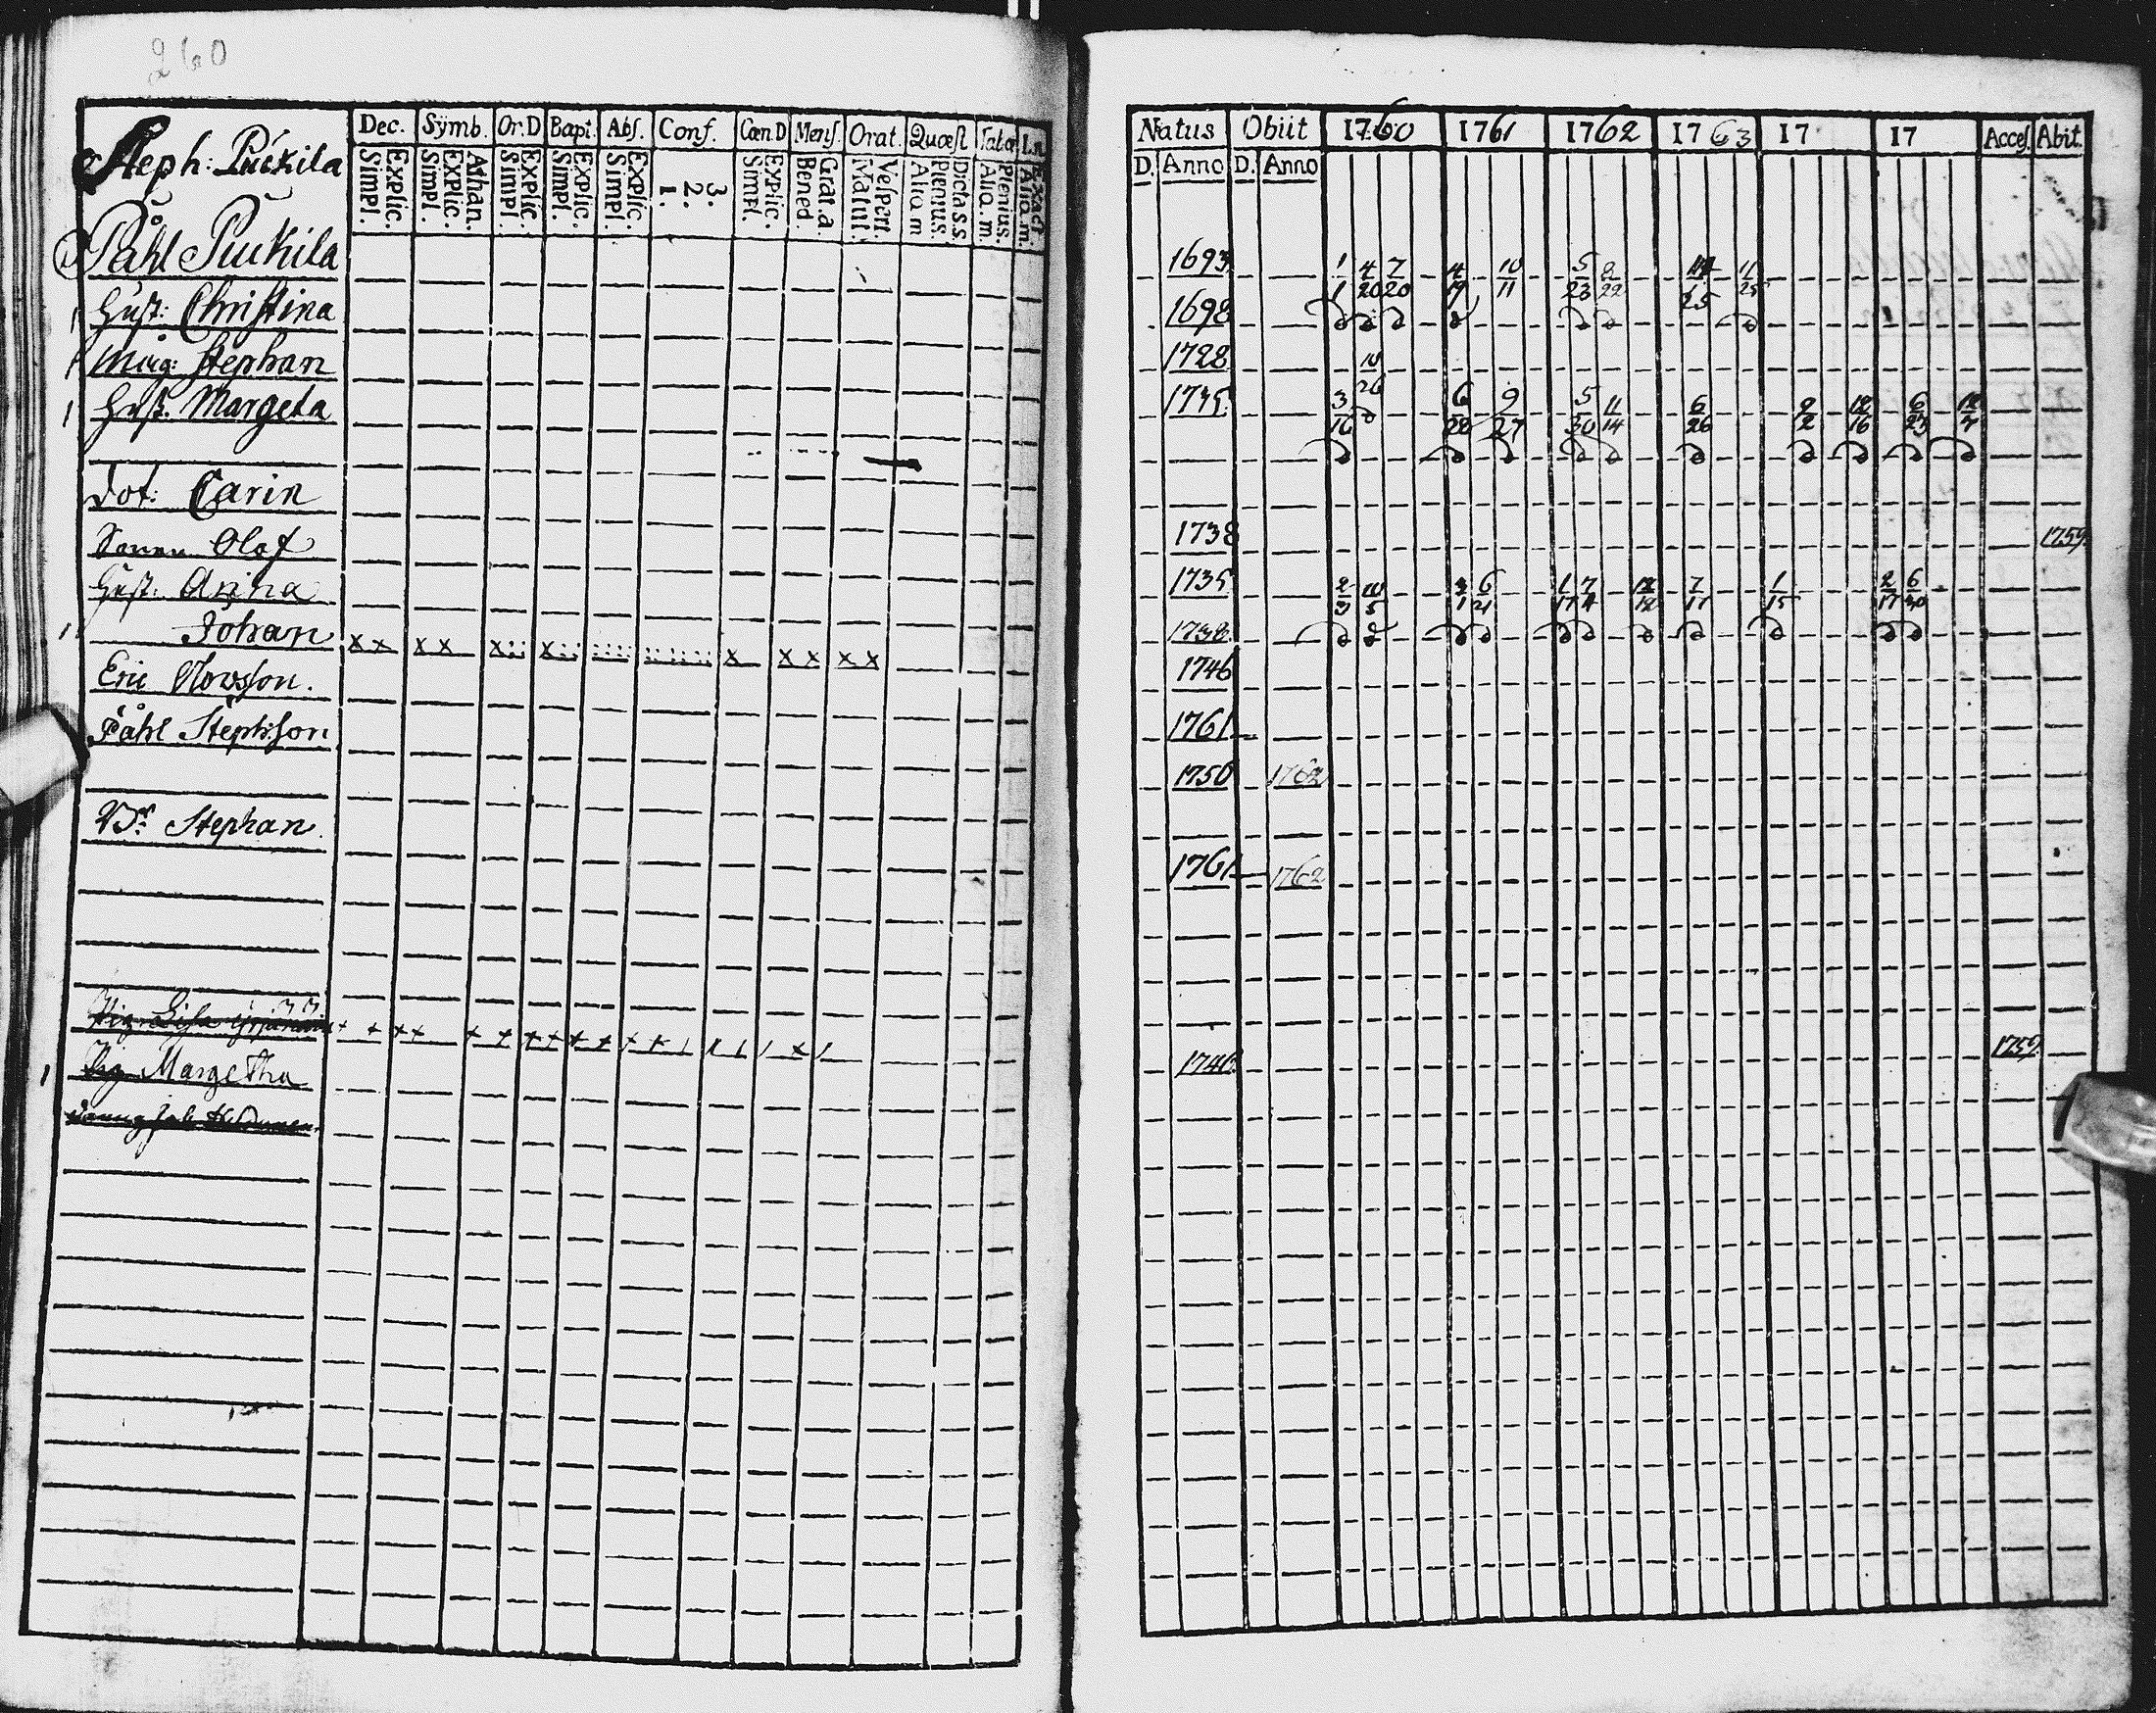 260
Dec. Sÿmb. Or.D Bapt. Abſ. Conf. Cœn.D Menſ. Orat. Quæſt
Simpl. Explic. Simpl. Explic. Athan. Simpl. Explic. Simpl. Explic. Simpl. Explic. 1. 2. 3. Simpl. Explic. Bened. Grat.a. Matut. Veſpert. Alio.m Plenius. Dicta s.s. Alia.m. Plenius.
Natus Obiit 1760 1761 1762 1763 17 17 Acceſ. Abit.
D. Anno D. Anno
Steph: Puckila
Påhl Puckila 1693 1/1 4/20 7/20 4/19 10/11 5/23 8/22 11/25
Huſt: Christina 1698
Måg: Stephan 1728 10/26
Huſt. Margeta 1735 3/16 6/28 9/27 5/30 11/14 6/26 2/2 12/16 6/23
Dot: Carin 1738 1759
Sonen Olof 1735 10/5 3/1 6/21 1/17 7/4 12/12 7/17 1/15 2/17 6/30
Huſt. Anna 1738
Johan x x x x x x x x x x x 1746
Eric Olowsson. 1761
Påhl Steph:son 1750 1762
Stephan 1761 1762
Pig Margetha 1746 1759